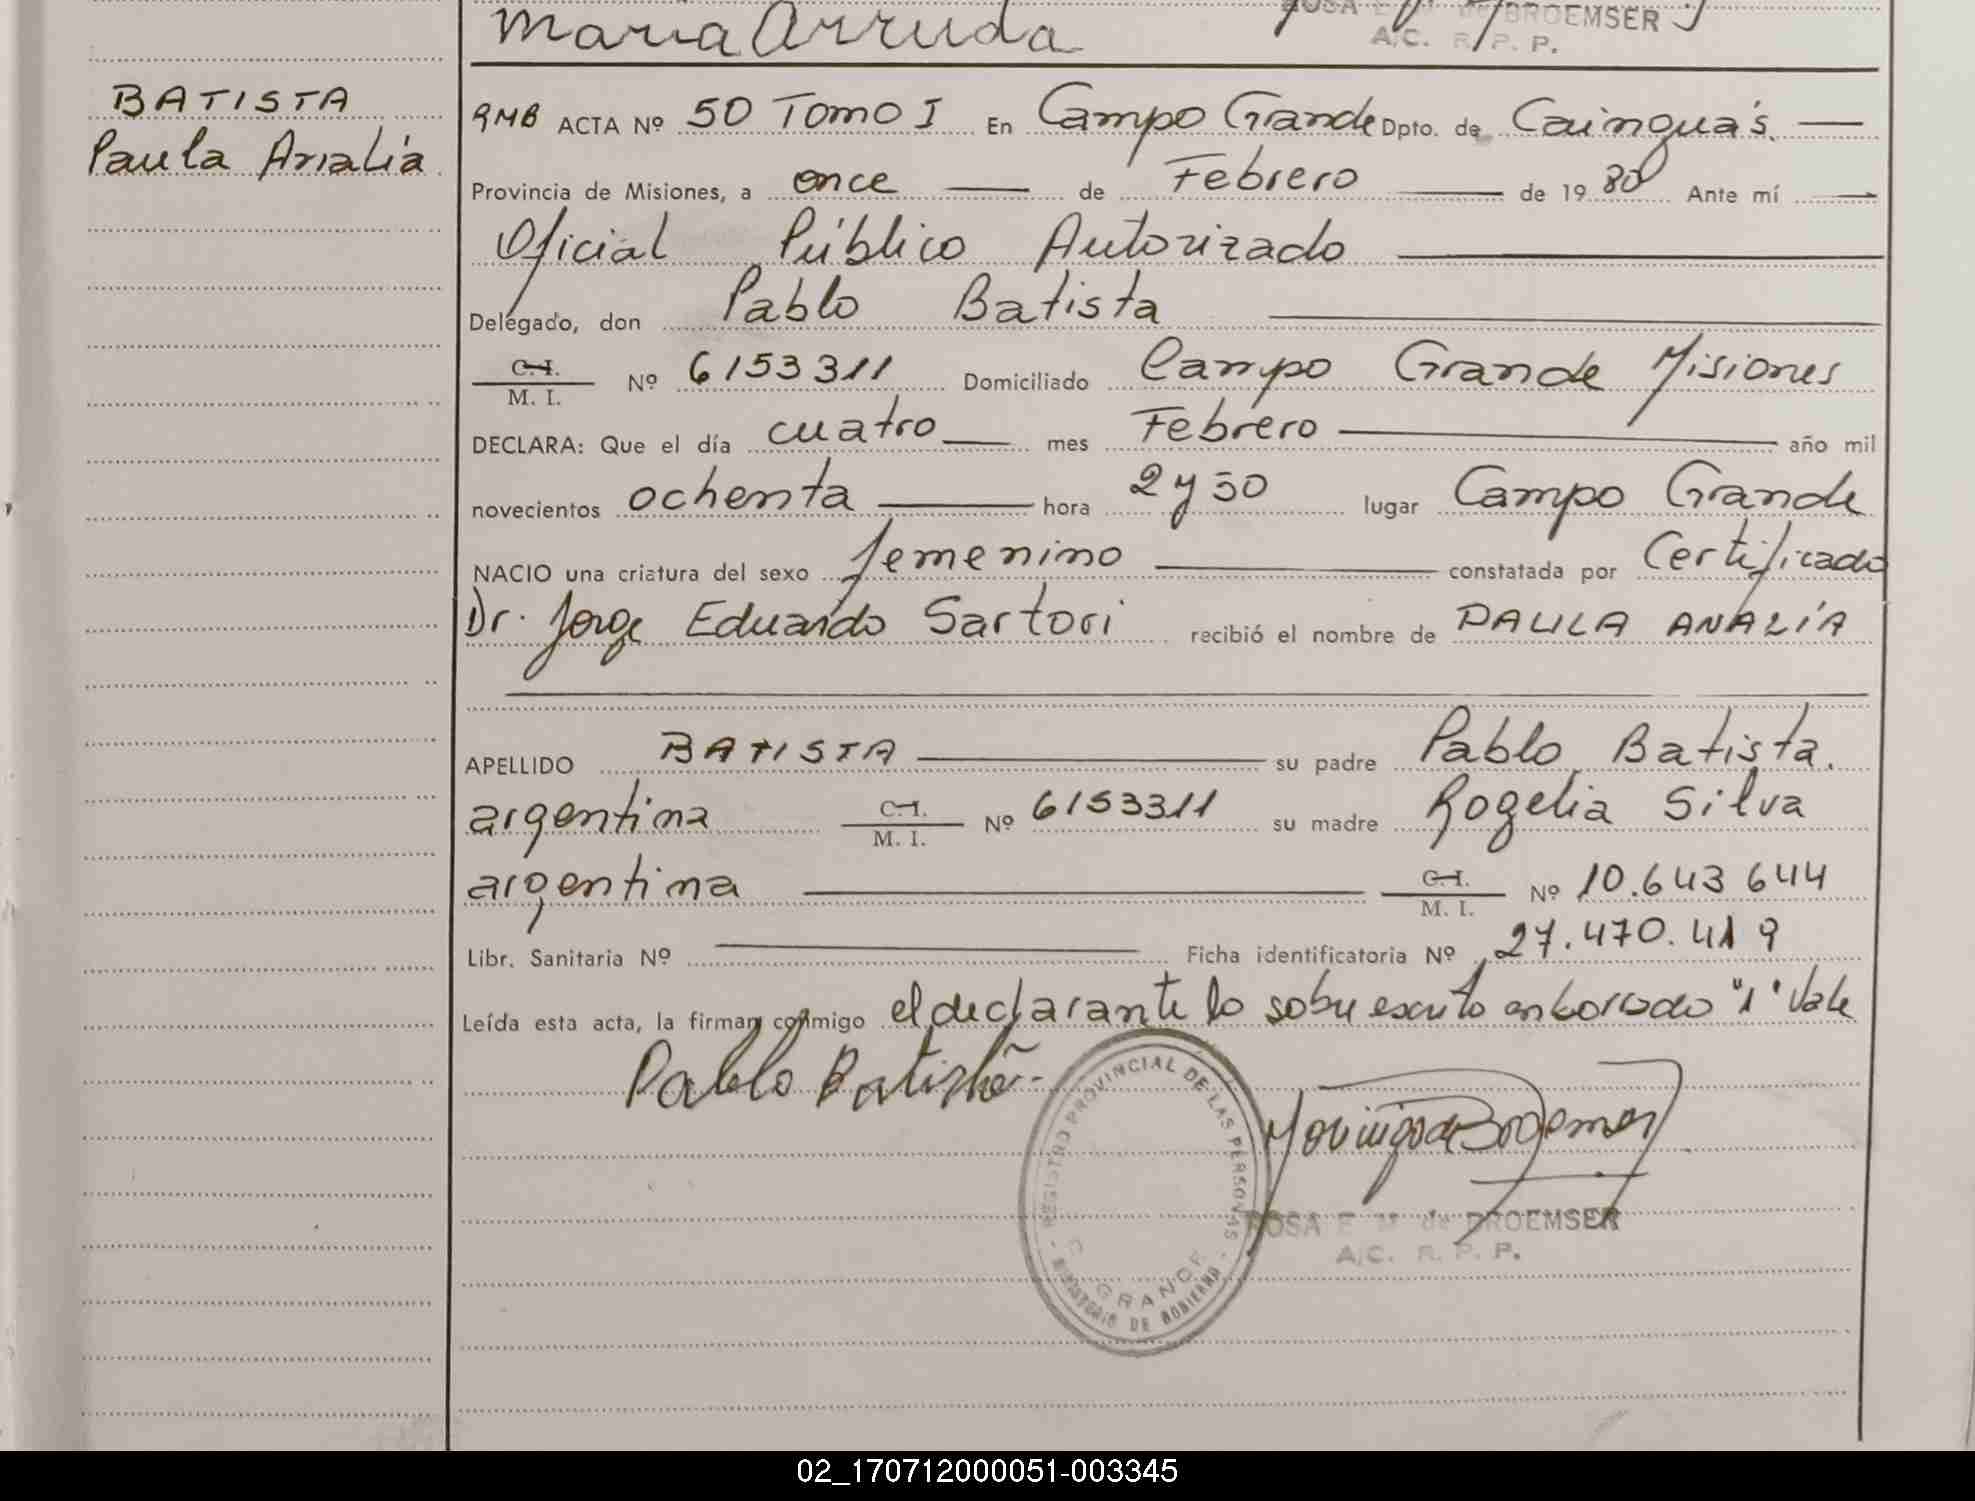 Maria Arruda
ROSA E M de BROEMSER
A/C. R. P. P.
BATISTA
Paula Analía
RMB ACTA Nº 50 Tomo I En Campo Grande Dpto. de Cainguás.
Provincia de Misiones, a once de Febrero de 1980 Ante mí
Oficial Público Autorizado
Delegado, don Pablo Batista
C. I.
M. I.
Nº 6153311 Domiciliado Campo Grande Misiones
DECLARA: Que el día cuatro mes Febrero año mil
novecientos ochenta hora 2 y 50 lugar Campo Grande
NACIO una criatura del sexo femenino constatada por Certificado
Dr. Jorge Eduardo Sartori recibió el nombre de PAULA ANALÍA
APELLIDO BATISTA su padre Pablo Batista.
argentina C. I. M. I. Nº 6153311 su madre Rogelia Silva
argentina C. I. M. I. Nº 10.643 644
Libr. Sanitaria Nº Ficha identificatoria Nº 27.470.419
Leída esta acta, la firman conmigo el declarante lo sobre escrito en borrado "1" Vale
Pablo Batista
REGISTRO PROVINCIAL DE LAS PERSONAS
C. GRANDE
MINISTERIO DE GOBIERNO
ROSA E M de BROEMSER
A/C. R. P. P.
02_170712000051-003345